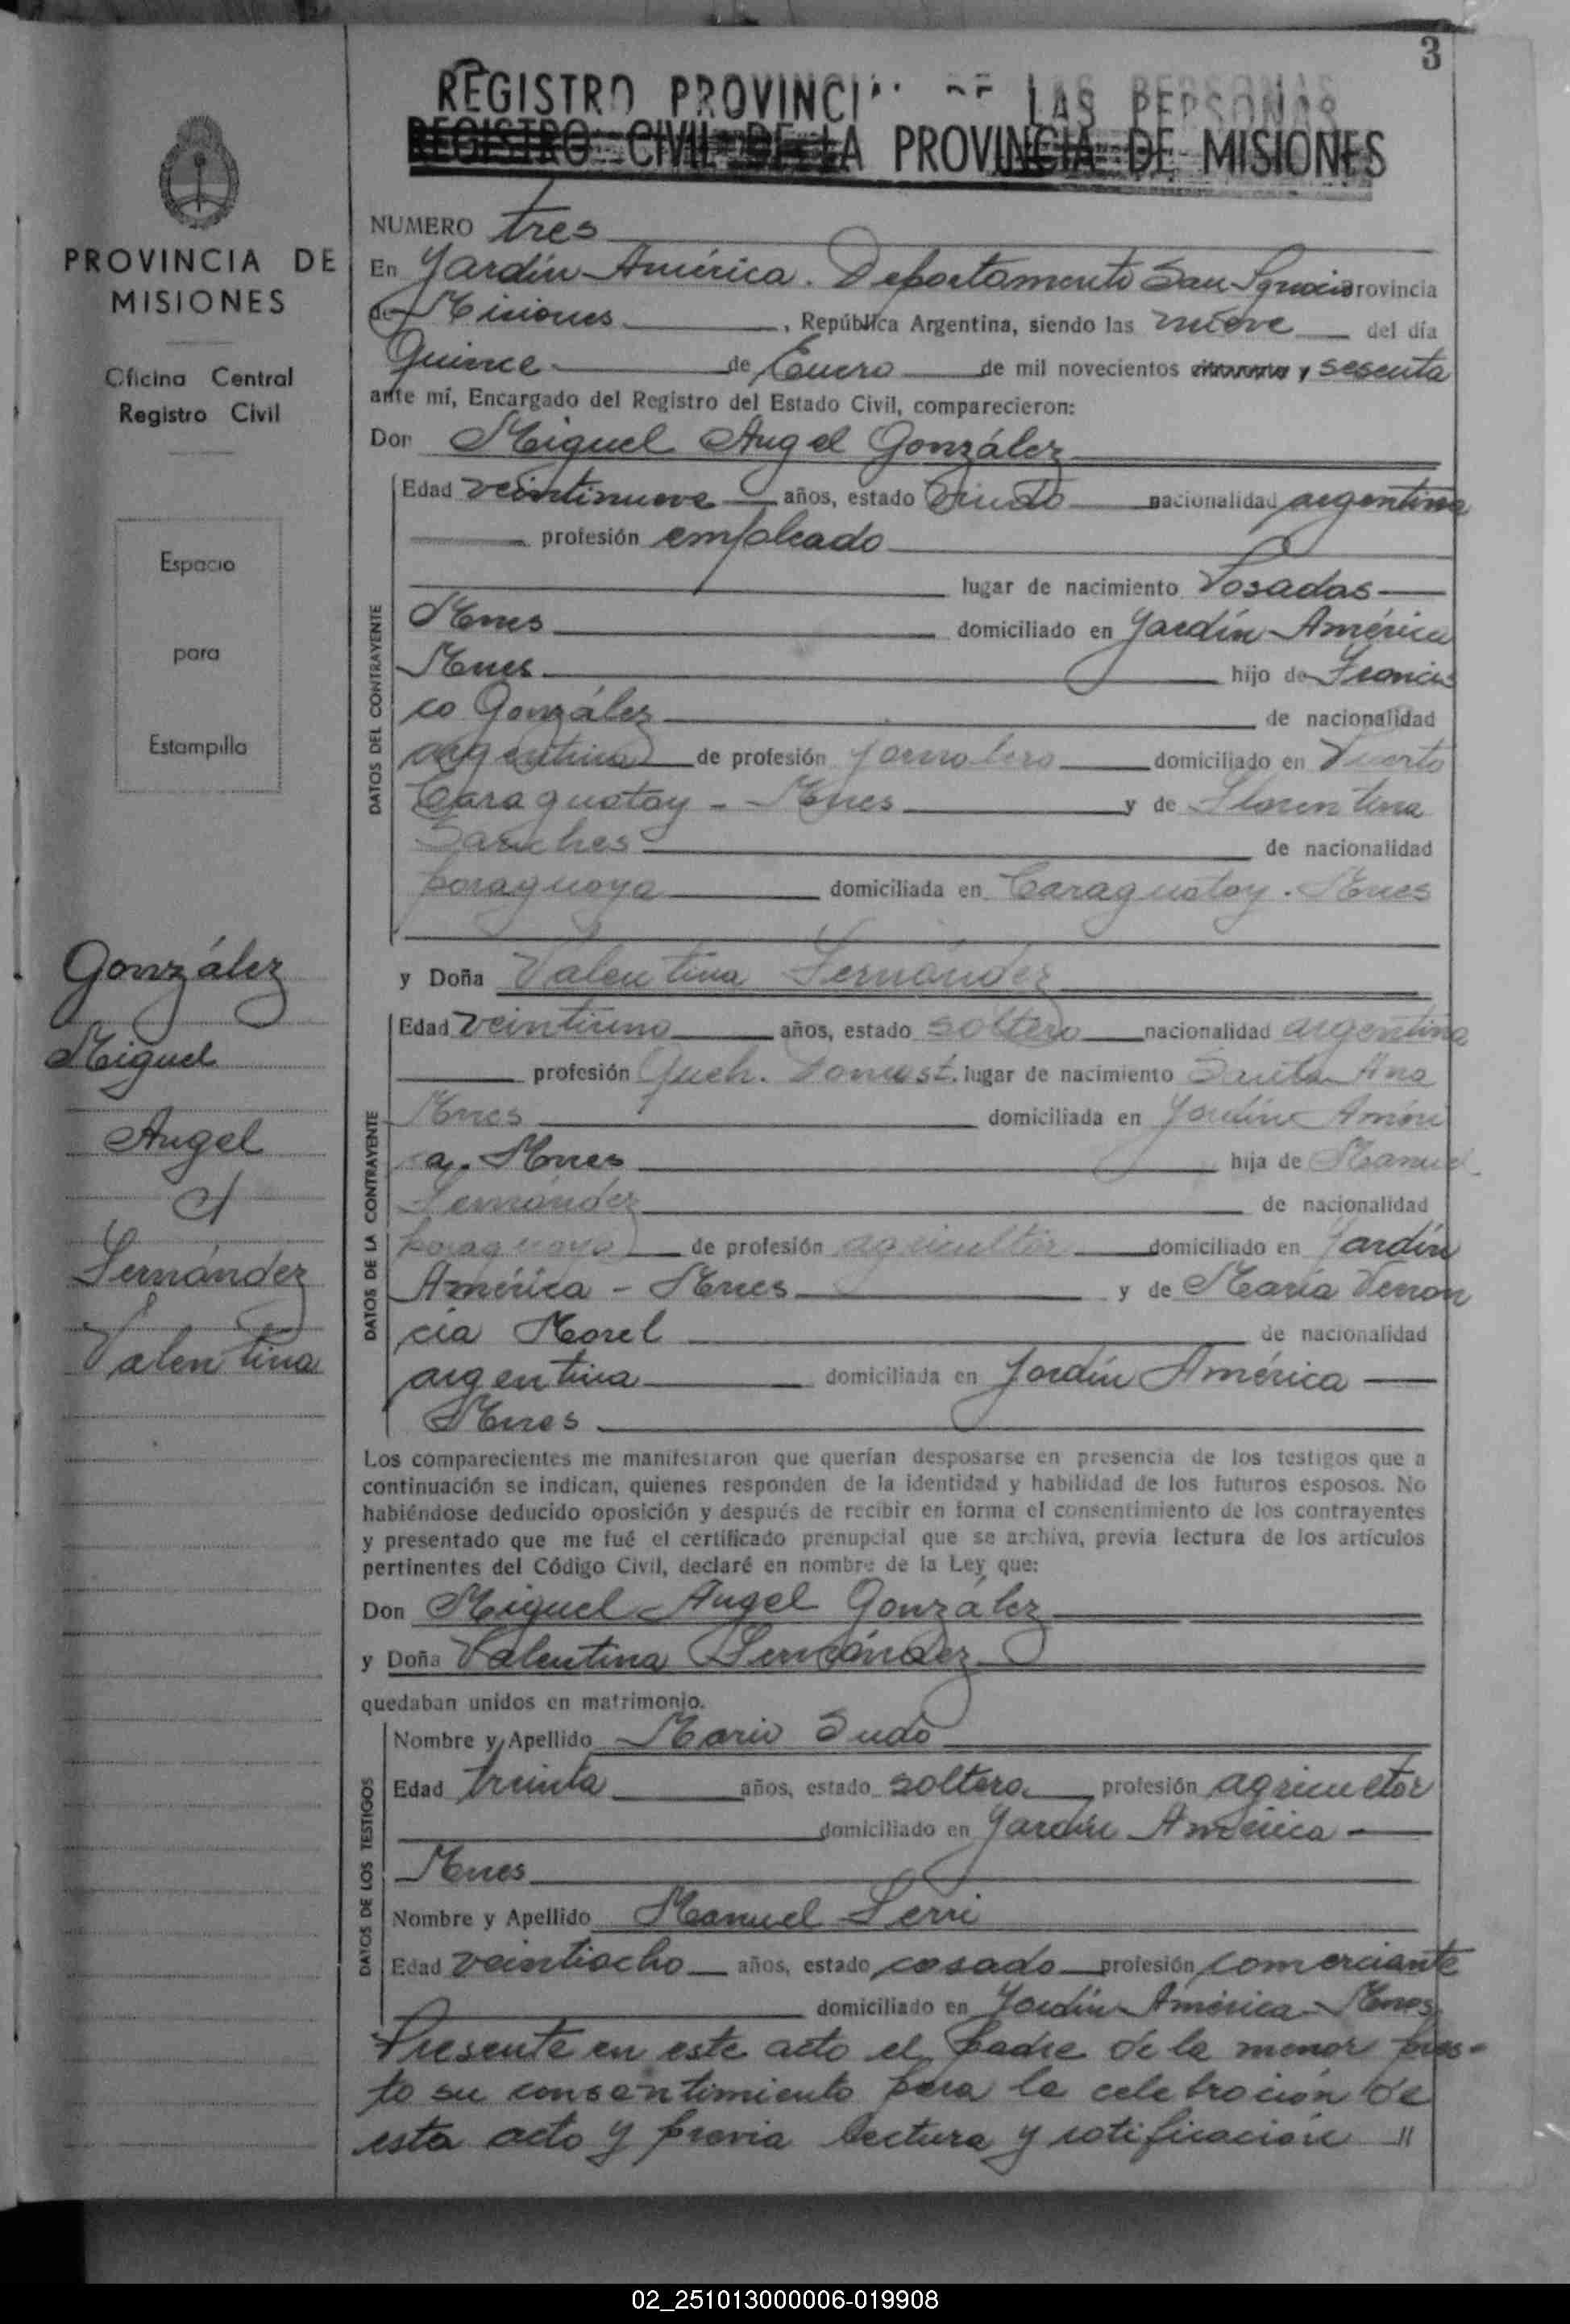 3
REGISTRO PROVINCIAL DE LAS PERSONAS
REGISTRO CIVIL DE LA PROVINCIA DE MISIONES
PROVINCIA DE
MISIONES
Oficina Central
Registro Civil
Espacio
para
Estampilla
González
Miguel
Angel
c/
Fernández
Valentina
NUMERO tres
En Jardín América. Departamento San Ignacio provincia
de Misiones, República Argentina, siendo las nueve del día
Quince de Enero de mil novecientos y sesenta
ante mí, Encargado del Registro del Estado Civil, comparecieron:
Don Miguel Angel González
DATOS DEL CONTRAYENTE
Edad veintinueve años, estado viudo nacionalidad argentina
profesión empleado
lugar de nacimiento Posadas
Mnes domiciliado en Jardín América
Mnes hijo de Francis
co González de nacionalidad
argentina de profesión jornalero domiciliado en Puerto
Caraguatay - Mnes y de Florentina
Sanches de nacionalidad
paraguaya domiciliada en Caraguatay. Mnes
y Doña Valentina Fernández
DATOS DE LA CONTRAYENTE
Edad veintiuno años, estado soltera nacionalidad argentina
profesión Queh. Domest. lugar de nacimiento Santa Ana
Mnes domiciliada en Jardín Améri
ca. Mnes hija de Manuel
Fernández de nacionalidad
paraguayo de profesión agricultor domiciliado en Jardín
América - Mnes y de María
Morel de nacionalidad
argentina domiciliada en Jardín América
Mnes
Los comparecientes me manifestaron que querían desposarse en presencia de los testigos que a
continuación se indican, quienes responden de la identidad y habilidad de los futuros esposos. No
habiéndose deducido oposición y después de recibir en forma el consentimiento de los contrayentes
y presentado que me fué el certificado prenupcial que se archiva, previa lectura de los artículos
pertinentes del Código Civil, declaré en nombre de la Ley que:
Don Miguel Angel González
y Doña Valentina Fernández
quedaban unidos en matrimonio.
DATOS DE LOS TESTIGOS
Nombre y Apellido Mario Sudo
Edad treinta años, estado soltero profesión agricultor
domiciliado en Jardín América
Mnes
Nombre y Apellido Manuel Ferri
Edad veintiocho años, estado casado profesión comerciante
domiciliado en Jardín América - Mnes
Presente en este acto el padre de la menor pres-
to su consentimiento para la celebración de
esta acto y previa lectura y ratificación //
02_251013000006-019908